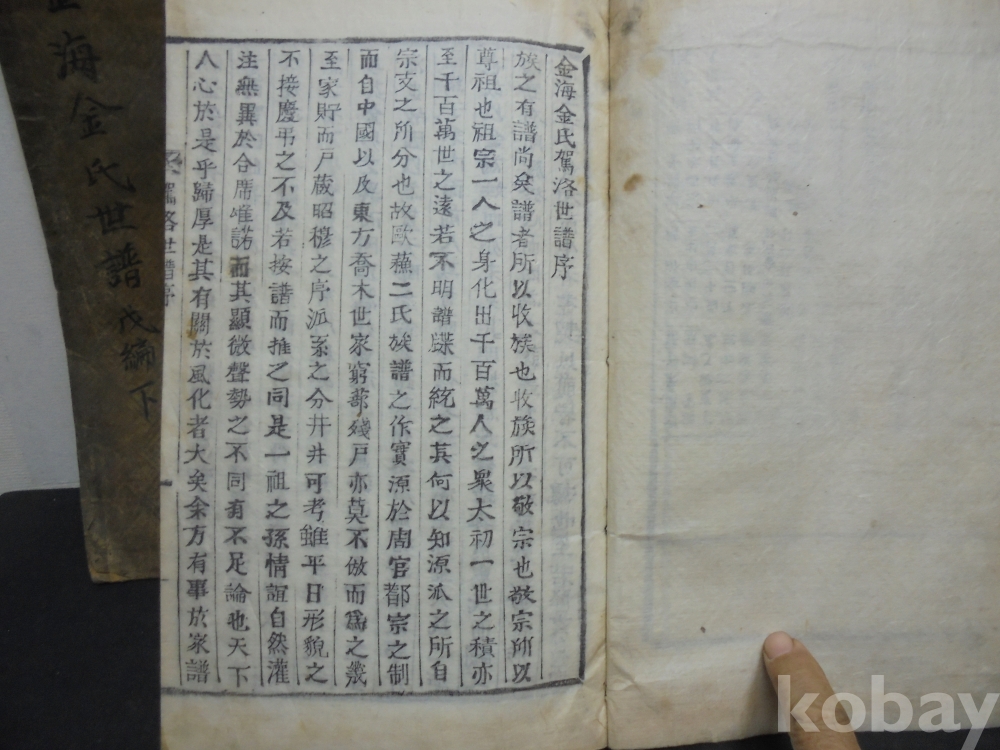 金海金氏駕洛世譜序
族之有譜尚矣譜者所以收族也收族所以敬宗也敬宗所以
尊祖也祖宗一人之身化出千百萬人之衆太初一世之積亦
至千百萬世之遠若不明譜牒而統之其何以知源派之所自
宗支之所分也故歐蘇二氏族譜之作實源於周官都宗之制
而自中國以及東方喬木世家窮蔀殘戶亦莫不倣而爲之幾
至家貯而戶藏昭穆之序派系之分井井可考雖平日形貌之
不接慶弔之不及若按譜而推之同是一祖之孫情誼自然灌
注無異於合席唯諾而其顯微聲勢之不同有不足論也天下
人心於是乎歸厚是其有關於風化者大矣余方有事於家譜
駕洛世譜序
金海金氏世譜 戊編下
kobay